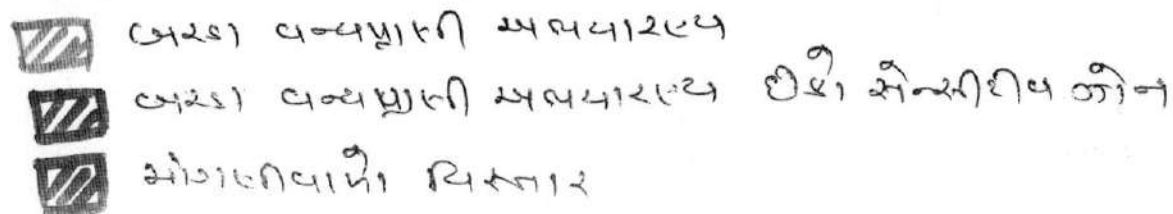 બરડા વન્યપ્રાણી અભયારણ્ય
બરડા વન્યપ્રાણી અભયારણ્ય ઈકો સેન્સીટીવ ઝોન
માંગણીવાળો વિસ્તાર